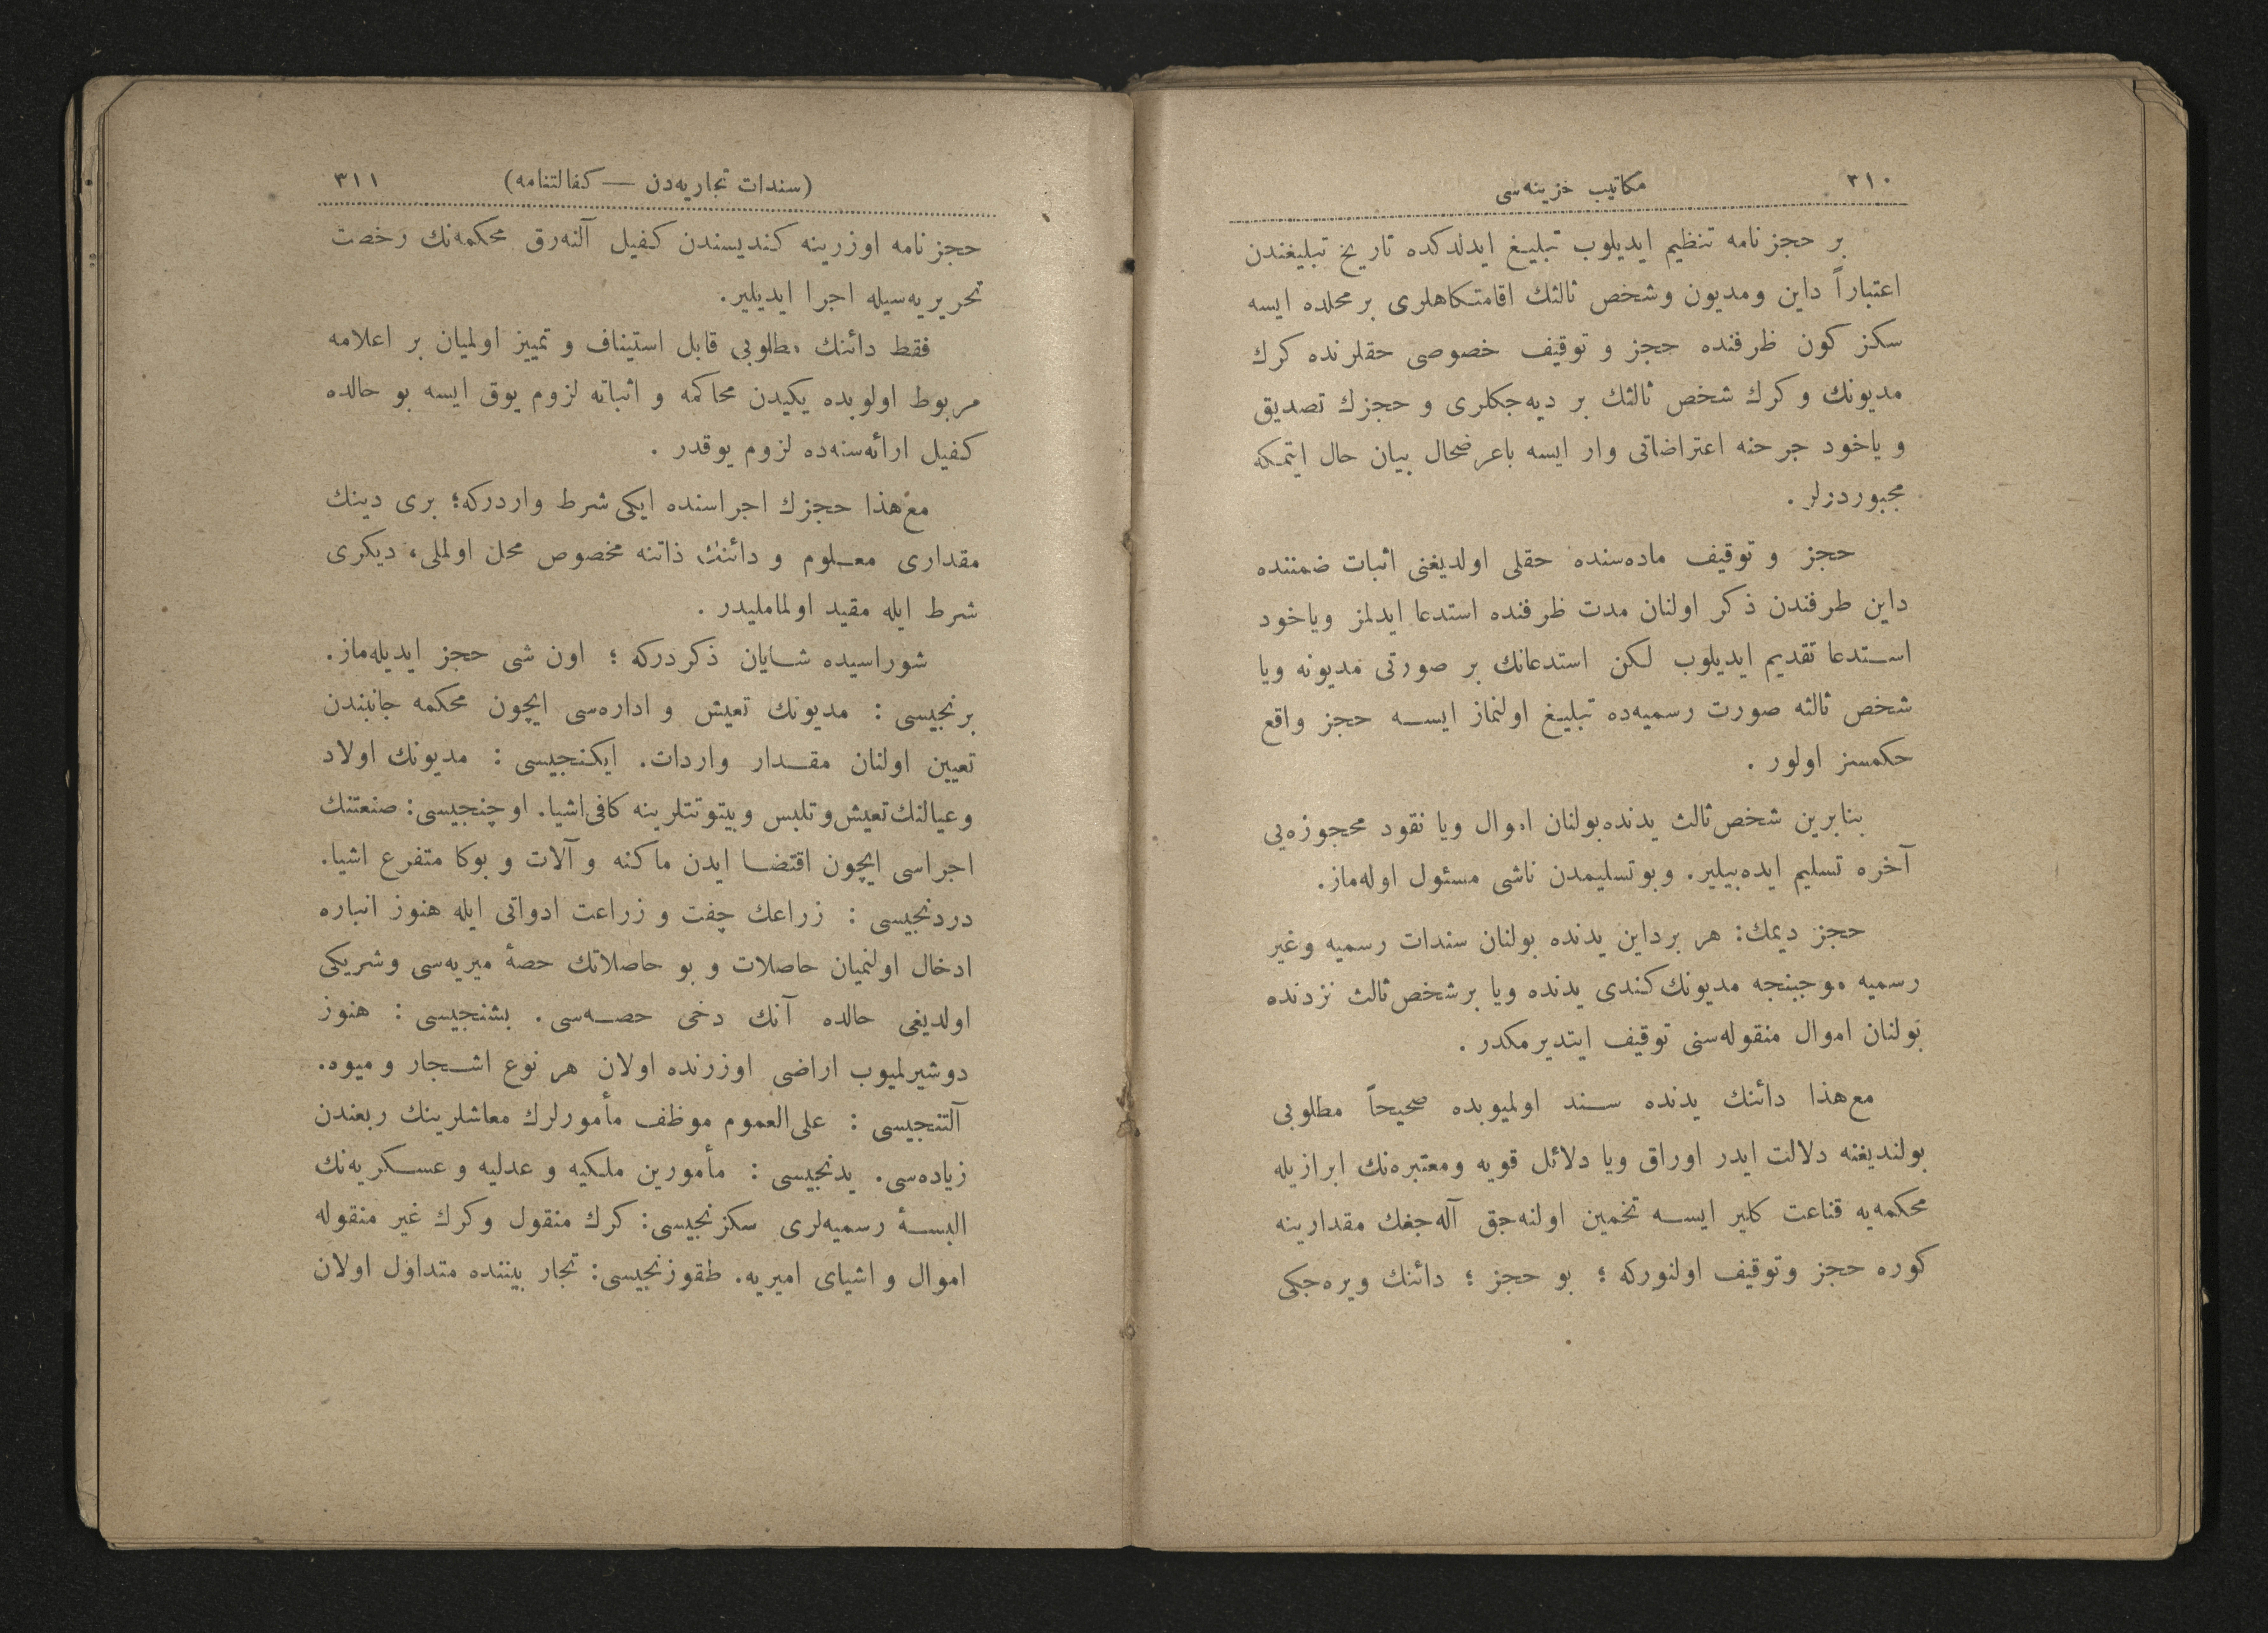 ٣١٠
مكاتيب خزينه‌سى
بر حجزنامه تنظيم ايديلوب تبليغ ايدلدكده تاريخ تبليغندن
اعتباراً داين ومديون وشخص ثالثك اقامتكاهلرى برمحلده ايسه
سكز كون ظرفنده حجز و توقيف خصوصى حقلرنده كرك
مديونك وكرك شخص ثالثك بر ديه‌جكلرى و حجزك تصديق
و ياخود جرحنه اعتراضاتى وار ايسه باعرضحال بيان حال ايتمكه
مجبوردرلر.
حجز و توقيف ماده‌سنده حقلى اولديغنى اثبات ضمننده
داين طرفندن ذكر اولنان مدت ظرفنده استدعا ايدلمز وياخود
استدعا تقديم ايديلوب لكن استدعانك بر صورتى مديونه ويا
شخص ثالثه صورت رسميه‌ده تبليغ اولنماز ايسه حجز واقع
حكمسز اولور.
بنابرين شخص ثالث يدنده بولنان اموال ويا نقود محجوزه‌يى
آخره تسليم ايده‌بيلير. وبوتسليمدن ناشى مسئول اوله‌ماز.
حجز ديمك: هر برداين يدنده بولنان سندات رسميه وغير
رسميه موجبنجه مديونك كندى يدنده ويا برشخص ثالث نزدنده
بولنان اموال منقوله‌سنى توقيف ايتديرمكدر.
مع‌هذا دائنك يدنده سند اولميوبده صحيحاً مطلوبى
بولنديغنه دلالت ايدر اوراق ويا دلائل قويه ومعتبره‌نك ابرازيله
محكمه‌يه قناعت كلير ايسه تخمين اولنه‌جق آله‌جغك مقدارينه
كوره حجز وتوقيف اولنوركه؛ بو حجز؛ دائنك ويره‌جكى
(سندات تجاريه‌دن — كفالتنامه)
٣١١
حجزنامه اوزرينه كنديسندن كفيل آلنه‌رق محكمه‌نك رخصت
تحريريه‌سيله اجرا ايديلير.
فقط دائنك مطلوبى قابل استيناف و تمييز اولميان بر اعلامه
مربوط اولوبده يكيدن محاكمه و اثباته لزوم يوق ايسه بو حالده
كفيل ارائه‌سنه‌ده لزوم يوقدر.
مع‌هذا حجزك اجراسنده ايكى شرط واردركه؛ برى دينك
مقدارى معلوم و دائنك ذاتنه مخصوص محلن اولملى، ديكرى
شرط ايله مقيد اولمامليدر.
شوراسيده شايان ذكردركه؛ اون شى حجز ايديله‌ماز.
برنجيسى: مديونك تعيش و اداره‌سى ايچون محكمه جانبندن
تعيين اولنان مقدار واردات. ايكنجيسى: مديونك اولاد
وعيالنك تعيش وتلبس وبيتوتتلرينه كافى‌اشيا. اوچنجيسى: صنعتنك
اجراسى ايچون اقتضا ايدن ماكنه و آلات و بوكا متفرع اشيا.
دردنجيسى: زراعك چفت و زراعت ادواتى ايله هنوز انباره
ادخال اولنميان حاصلات و بو حاصلاتك حصهٔ ميريه‌سى وشريكى
اولديغى حالده آنك دخى حصه‌سى. بشنجيسى: هنوز
دوشيرلميوب اراضى اوزرنده اولان هر نوع اشجار وميوه.
آلتنجيسى: على‌العموم موظف مأمورلرك معاشلرينك ربعندن
زياده‌سى. يدنجيسى: مأمورين ملكيه و عدليه و عسكريه‌نك
البسهٔ رسميه‌لرى سكزنجيسى: كرك منقول وكرك غير منقوله
اموال و اشياى اميريه. طقوزنجيسى: تجار بيننده متداول اولان